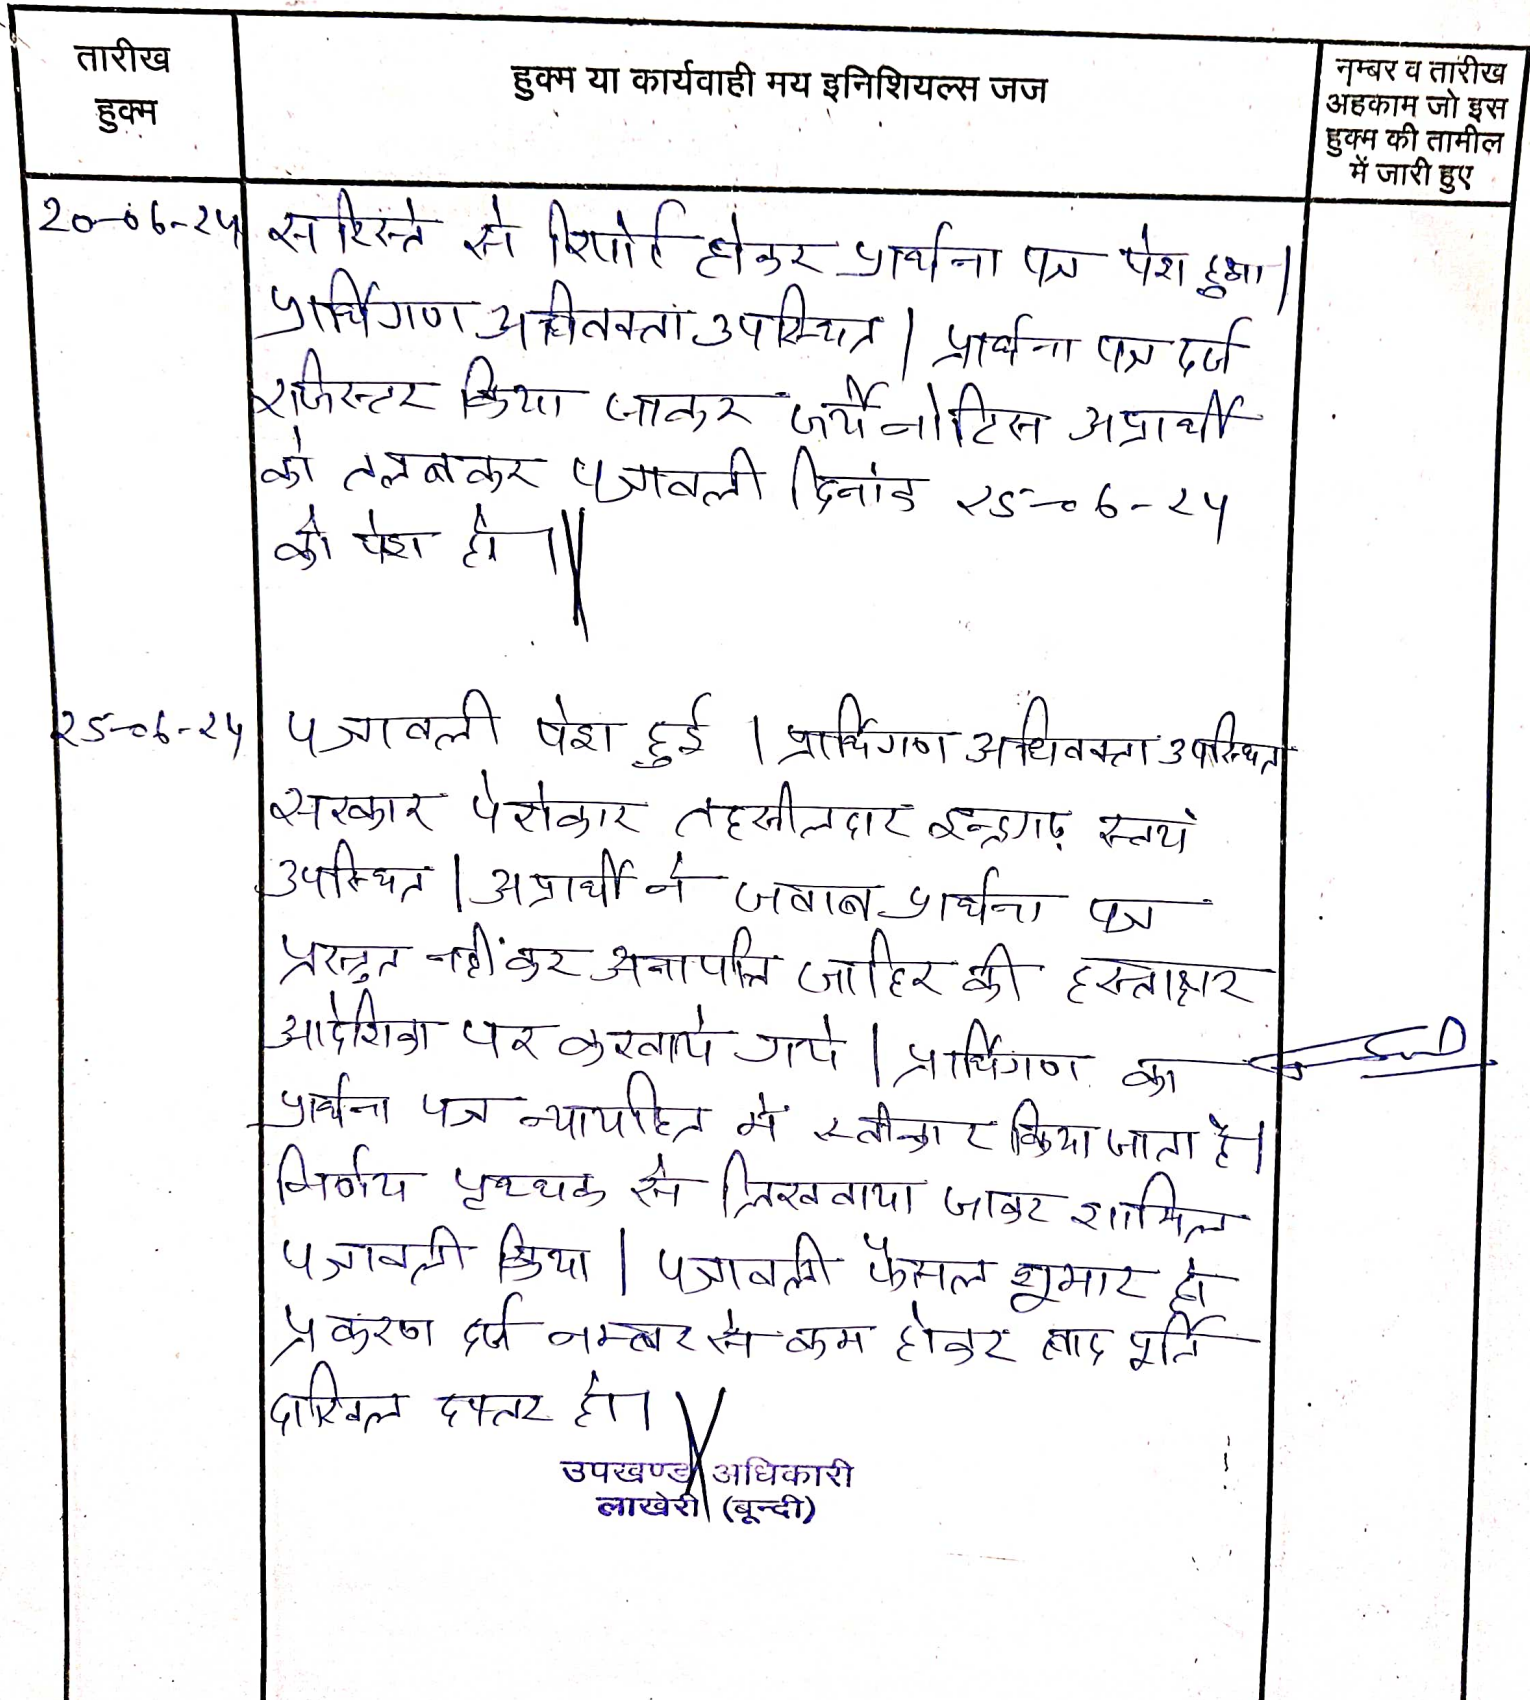 तारीख
हुक्म
हुक्म या कार्यवाही मय इनिशियल्स जज
नम्बर व तारीख
अहकाम जो इस
हुक्म की तामील
में जारी हुए
20-06-24 सरिस्ते से रिपोर्ट होकर प्रार्थना पत्र पेश हुआ।
प्रार्थिगण अधिवक्ता उपस्थित। प्रार्थना पत्र दर्ज
रजिस्टर किया जाकर जर्ये नोटिस अप्रार्थी
को तलब कर पत्रावली दिनांक 25-06-24
को पेश हो।
25-06-24 पत्रावली पेश हुई। प्रार्थिगण अधिवक्ता उपस्थित
सरकार पेरोकार तहसीलदार इन्द्रगढ़ स्वयं
उपस्थित। अप्रार्थी ने जवाब प्रार्थना पत्र
प्रस्तुत नहीं कर अनापत्ति जाहिर की हस्ताक्षर
आदेशिका पर करवाये गये। प्रार्थिगण का
प्रार्थना पत्र न्यायहित में स्वीकार किया जाता है।
निर्णय पृथ्थक से लिखवाया जाकर शामिल
पत्रावली किया। पत्रावली फैसल शुमार हो
प्रकरण दर्ज नम्बर से कम होकर बाद पूर्ति
दाखिल दफ्तर हो।
उपखण्ड अधिकारी
लाखेरी (बून्दी)